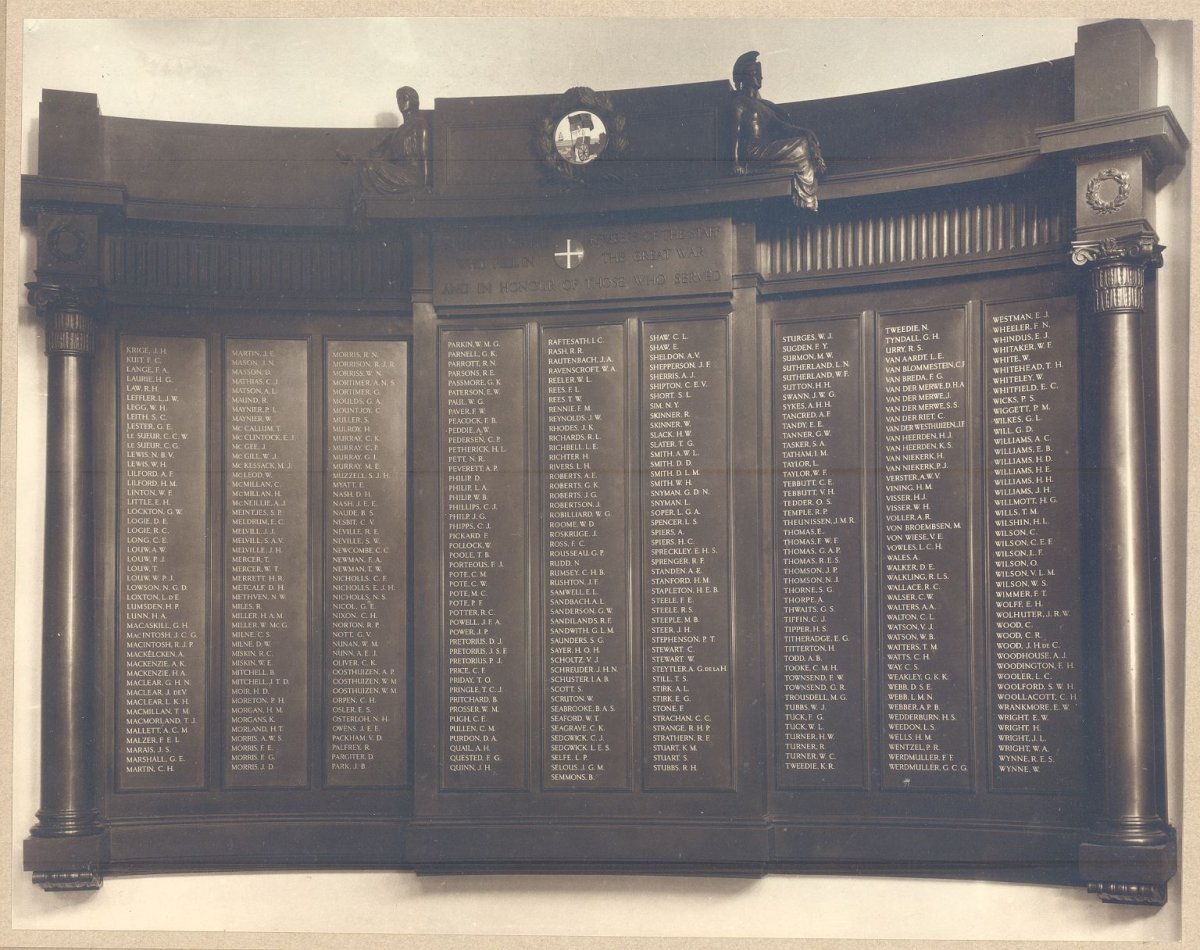 MEMBERS OF THE STAFF
THE GREAT WAR
AND IN HONOUR OF THOSE WHO SERVED
KRIGE, J. H.
KUIT, P. C.
LANGE, F. A.
LAURIE, H. G.
LAW, R. H.
LEFFLER, L. J. W.
LEGG, W. H.
LEITH, S. C.
LESTER, G. E.
LE SUEUR, C. C. W.
LE SUEUR, C. G.
LEWIS, N. B. V.
LEWIS, W. H.
LILFORD, A. F.
LILFORD, H. M.
LINTON, W. F.
LITTLE, E. H.
LOCKTON, G. W.
LOGIE, D. E.
LOGIE, R. C.
LONG, C. E.
LOUW, A. W.
LOUW, P. J.
LOUW, T.
LOUW, W. P. J.
LOWSON, N. G. D.
LOXTON, L. D E.
LUMSDEN, H. P.
LUNN, H. A.
MACASKILL, G. H.
MACINTOSH, J. C. G.
MACINTOSH, R. J. P.
MACKËLCKEN, A.
MACKENZIE, A. K.
MACKENZIE, H. A.
MACLEAR, G. H. N.
MACLEAR, J. DEV.
MACLEAR, L. K. H.
MACMILLAN, T. M.
MACMORLAND, T. J.
MALLETT, A. C. M.
MALZER, F. E. L.
MARAIS, J. S.
MARSHALL, G. E.
MARTIN, C. H.
MARTIN, J. E.
MASON, J. N.
MASSON, D.
MATHIAS, C. J.
MATSON, A. L.
MAUND, R.
MAYNIER, P. L.
MAYNIER, W.
MC CALLUM, T.
MC CLINTOCK, E. J.
MC GEE, J.
MC GILL, W. J.
MC KESSACK, M. J.
MCLEOD, W.
MCMILLAN, C.
MCMILLAN, H.
MCNEILLIE, A. J.
MEINTJES, S. P.
MELDRUM, F. C.
MELVILL, J. J.
MELVILL, S. A. V.
MELVILLE, J. H.
MERCER, T.
MERCER, W. T.
MERRETT, H. R.
METCALF, D. H.
METHVEN, N. W.
MILES, R.
MILLER, H. A. M.
MILLER, W. MCG.
MILNE, C. S.
MILNE, D. W.
MISKIN, R. C.
MISKIN, W. E.
MITCHELL, B.
MITCHELL, J. T. D.
MOIR, H. D.
MORETON, P. H.
MORGAN, H. M.
MORGANS, K.
MORLAND, H. T.
MORRIS, A. W. S.
MORRIS, F. E.
MORRIS, F. G.
MORRIS, J. D.
MORRIS, R. N.
MORRISON, R. J. R.
MORRISS, W. N.
MORTIMER, A. N. S.
MORTIMER, G.
MOULDS, G. A.
MOUNTJOY, C.
MULLER, S.
MULROY, H.
MURRAY, C. K.
MURRAY, C. P.
MURRAY, G. I.
MURRAY, M. E.
MUZZELL, S. J. H.
MYATT, E.
NASH, D. H.
NASH, J. E. E.
NAUDE, B. S.
NESBIT, C. V.
NEVILLE, R. E.
NEVILLE, S. W.
NEWCOMBE, C. C.
NEWMAN, F. A.
NEWMAN, T. W.
NICHOLLS, C. F.
NICHOLLS, E. J. H.
NICHOLLS, N. S.
NICOL, G. E.
NIXON, C. H.
NORTON, R. P.
NOTT, G. V.
NUNAN, W. M.
NUNN, A. E. J.
OLIVER, C. K.
OOSTHUIZEN, A. P.
OOSTHUIZEN, W. M.
OOSTHUIZEN, W. M.
ORPEN, C. H.
OSLER, E. S.
OSTERLOH, N. H.
OWENS, J. E. E.
PACKHAM, V. D.
PALFREY, R.
PARGITER, D.
PARK, J. B.
PARKIN, W. M. G.
PARNELL, G. K.
PARROTT, R. N.
PARSONS, R. E.
PASSMORE, G. K.
PATERSON, E. W.
PAUL, W. G.
PAVER, F. W.
PEACOCK, F. B.
PEDDIE, A. W.
PEDERSEN, C. P.
PETHERICK, H. L.
PETT, N. R.
PEVERETT, A. P.
PHILIP, D.
PHILIP, L. A.
PHILIP, W. B.
PHILLIPS, C. J.
PHILP, J. G.
PHIPPS, C. J.
PICKARD, F.
POLLOCK, W.
POOLE, T. B.
PORTEOUS, F. J.
POTE, C. M.
POTE, C. W.
POTE, M. C.
POTE, P. F.
POTTER, R. C.
POWELL, J. F. A.
POWER, J. P.
PRETORIUS, D. J.
PRETORIUS, J. S. F.
PRETORIUS, P. J.
PRICE, C. F.
PRIDAY, T. O.
PRINGLE, T. C. J.
PRITCHARD, B.
PROSSER, W. M.
PUGH, C. E.
PULLEN, C. M.
PURDON, D. A.
QUAIL, A. H.
QUESTED, F. G.
QUINN, J. H.
RAFTESATH, I. C.
RASH, R. R.
RAUTENBACH, J. A.
RAVENSCROFT, W. A.
REELER, W. L.
REES, E. L.
REES, T. W.
RENNIE, F. M.
REYNOLDS, J. W.
RHODES, J. K.
RICHARDS, R. L.
RICHBELL, I. E.
RICHTER, H.
RIVERS, L. H.
ROBERTS, A. E.
ROBERTS, G. K.
ROBERTS, J. G.
ROBERTSON, J.
ROBILLIARD, W. G.
ROOME, W. D.
ROSKRUGE, J.
ROSS, F. C.
ROUSSEAU, G. P.
RUDD, N.
RUMSEY, C. H. B.
RUSHTON, J. F.
SAMWELL, E. L.
SANDBACH, A. L.
SANDERSON, G. W.
SANDILANDS, R. F.
SANDWITH, G. L. M.
SAUNDERS, S. G.
SAYER, H. O. H.
SCHOLTZ, V. J.
SCHREUDER, J. H. N.
SCHUSTER, I. A. B.
SCOTT, S.
SCRUTON, W.
SEABROOKE, B. A. S.
SEAFORD, W. T.
SEAGRAVE, C. K.
SEDGWICK, C. J.
SEDGWICK, L. E. S.
SELFE, L. P.
SELOUS, J. G. M.
SEMMONS, B.
SHAW, C. L.
SHAW, E.
SHELDON, A. V.
SHEPPERSON, J. F.
SHERRIS, A. J.
SHIPTON, C. E. V.
SHORT, S. L.
SIM, N. Y.
SKINNER, R.
SKINNER, W.
SLACK, H. W.
SLATER, T. G.
SMITH, A. W. L.
SMITH, D. D.
SMITH, D. L. M.
SMITH, W. H.
SNYMAN, G. D. N.
SNYMAN, I.
SOPER, L. G. A.
SPENCER, L. S.
SPIERS, A.
SPIERS, H. C.
SPRECKLEY, E. H. S.
SPRENGER, R. F.
STANDEN, A. E.
STANFORD, H. M.
STAPLETON, H. E. B.
STEELE, F. E.
STEELE, R. S.
STEEPLE, M. B.
STEER, J. H.
STEPHENSON, P. T.
STEWART, C.
STEWART, W.
STEYTLER, A. G. DE LA H.
STILL, T. S.
STIRK, A. L.
STIRK, E. G.
STONE, F.
STRACHAN, C. C.
STRANGE, R. H. P.
STRATHERN, R. F.
STUART, K. M.
STUART, S.
STUBBS, R. H.
STURGES, W. J.
SUGDEN, F. Y.
SURMON, M. W.
SUTHERLAND, L. N.
SUTHERLAND, W. F.
SUTTON, H. H.
SWANN, J. W. G.
SYKES, A. H. H.
TANCRED, A. F.
TANDY, E. E.
TANNER, G. W.
TASKER, S. A.
TATHAM, I. M.
TAYLOR, L.
TAYLOR, W. F.
TEBBUTT, C. E.
TEBBUTT, V. H.
TEDDER, O. S.
TEMPLE, R. P.
THEUNISSEN, J. M. R.
THOMAS, E.
THOMAS, F. W. F.
THOMAS, G. A. P.
THOMAS, R. E. S.
THOMSON, J. P.
THOMSON, N. J.
THORNE, S. G.
THORPE, A.
THWAITS, G. S.
TIFFIN, C. J.
TIPPER, H. S.
TITHERADGE, E. G.
TITTERTON, H.
TODD, A. B.
TOOKE, C. M. H.
TOWNSEND, F. W.
TOWNSEND, G. R.
TROUSDELL, M. G.
TUBBS, W. J.
TUCK, F. G.
TUCK, W. L.
TURNER, H. W.
TURNER, R.
TURNER, W. C.
TWEEDIE, K. R.
TWEEDIE, N.
TYNDALL, G. H.
URRY, R. S.
VAN AARDT, L. E.
VAN BLOMMESTEIN, C. F.
VAN BREDA, F. G.
VAN DER MERWE, D. H. A.
VAN DER MERWE, J.
VAN DER MERWE, S. S.
VAN DER RIET, C.
VAN DER WESTHUIZEN, J. F.
VAN HEERDEN, H. J.
VAN HEERDEN, K. S.
VAN NIEKERK, H.
VAN NIEKERK, P. J.
VERSTER, A. W. V.
VINING, H. M.
VISSER, H. J.
VISSER, W. H.
VOLLER, A. R.
VON BROEMBSEN, M.
VON WIESE, V. E.
VOWLES, L. C. H.
WALES, A.
WALKER, D. E.
WALKLING, R. L. S.
WALLACE, R. C.
WALSER, C. W.
WALTERS, A. A.
WALTON, C. L.
WATSON, V. J.
WATSON, W. B.
WATTERS, T. M.
WATTS, C. H.
WAY, C. S.
WEAKLEY, G. K. K.
WEBB, D. S. E.
WEBB, L. M. N.
WEBBER, A. P. B.
WEDDERBURN, H. S.
WEEDON, L. S.
WELLS, H. M.
WENTZEL, P. R.
WERDMULLER, F. F.
WERDMULLER, G. C. G.
WESTMAN, E. J.
WHEELER, F. N.
WHINDUS, E. J.
WHITAKER, W. F.
WHITE, W.
WHITEHEAD, T. H.
WHITELEY, W.
WHITFIELD, E. C.
WICKS, P. S.
WIGGETT, P. M.
WILKES, G. L.
WILL, G. D.
WILLIAMS, A. C.
WILLIAMS, E. B.
WILLIAMS, H. D.
WILLIAMS, H. E.
WILLIAMS, H. H.
WILLIAMS, J. H.
WILLMOTT, H. G.
WILLS, T. M.
WILSHIN, H. L.
WILSON, C.
WILSON, C. E. F.
WILSON, L. F.
WILSON, O.
WILSON, V. L. M.
WILSON, W. S.
WIMMER, F. T.
WOLFF, E. H.
WOLHUTER, J. R. W.
WOOD, C.
WOOD, C. R.
WOOD, J. H. DE C.
WOODHOUSE, A. J.
WOODINGTON, F. H.
WOOLER, L. C.
WOOLFORD, S. W. H.
WOOLLACOTT, C. H.
WRANKMORE, E. W.
WRIGHT, E. W.
WRIGHT, H.
WRIGHT, J. L.
WRIGHT, W. A.
WYNNE, R. E. S.
WYNNE, W.